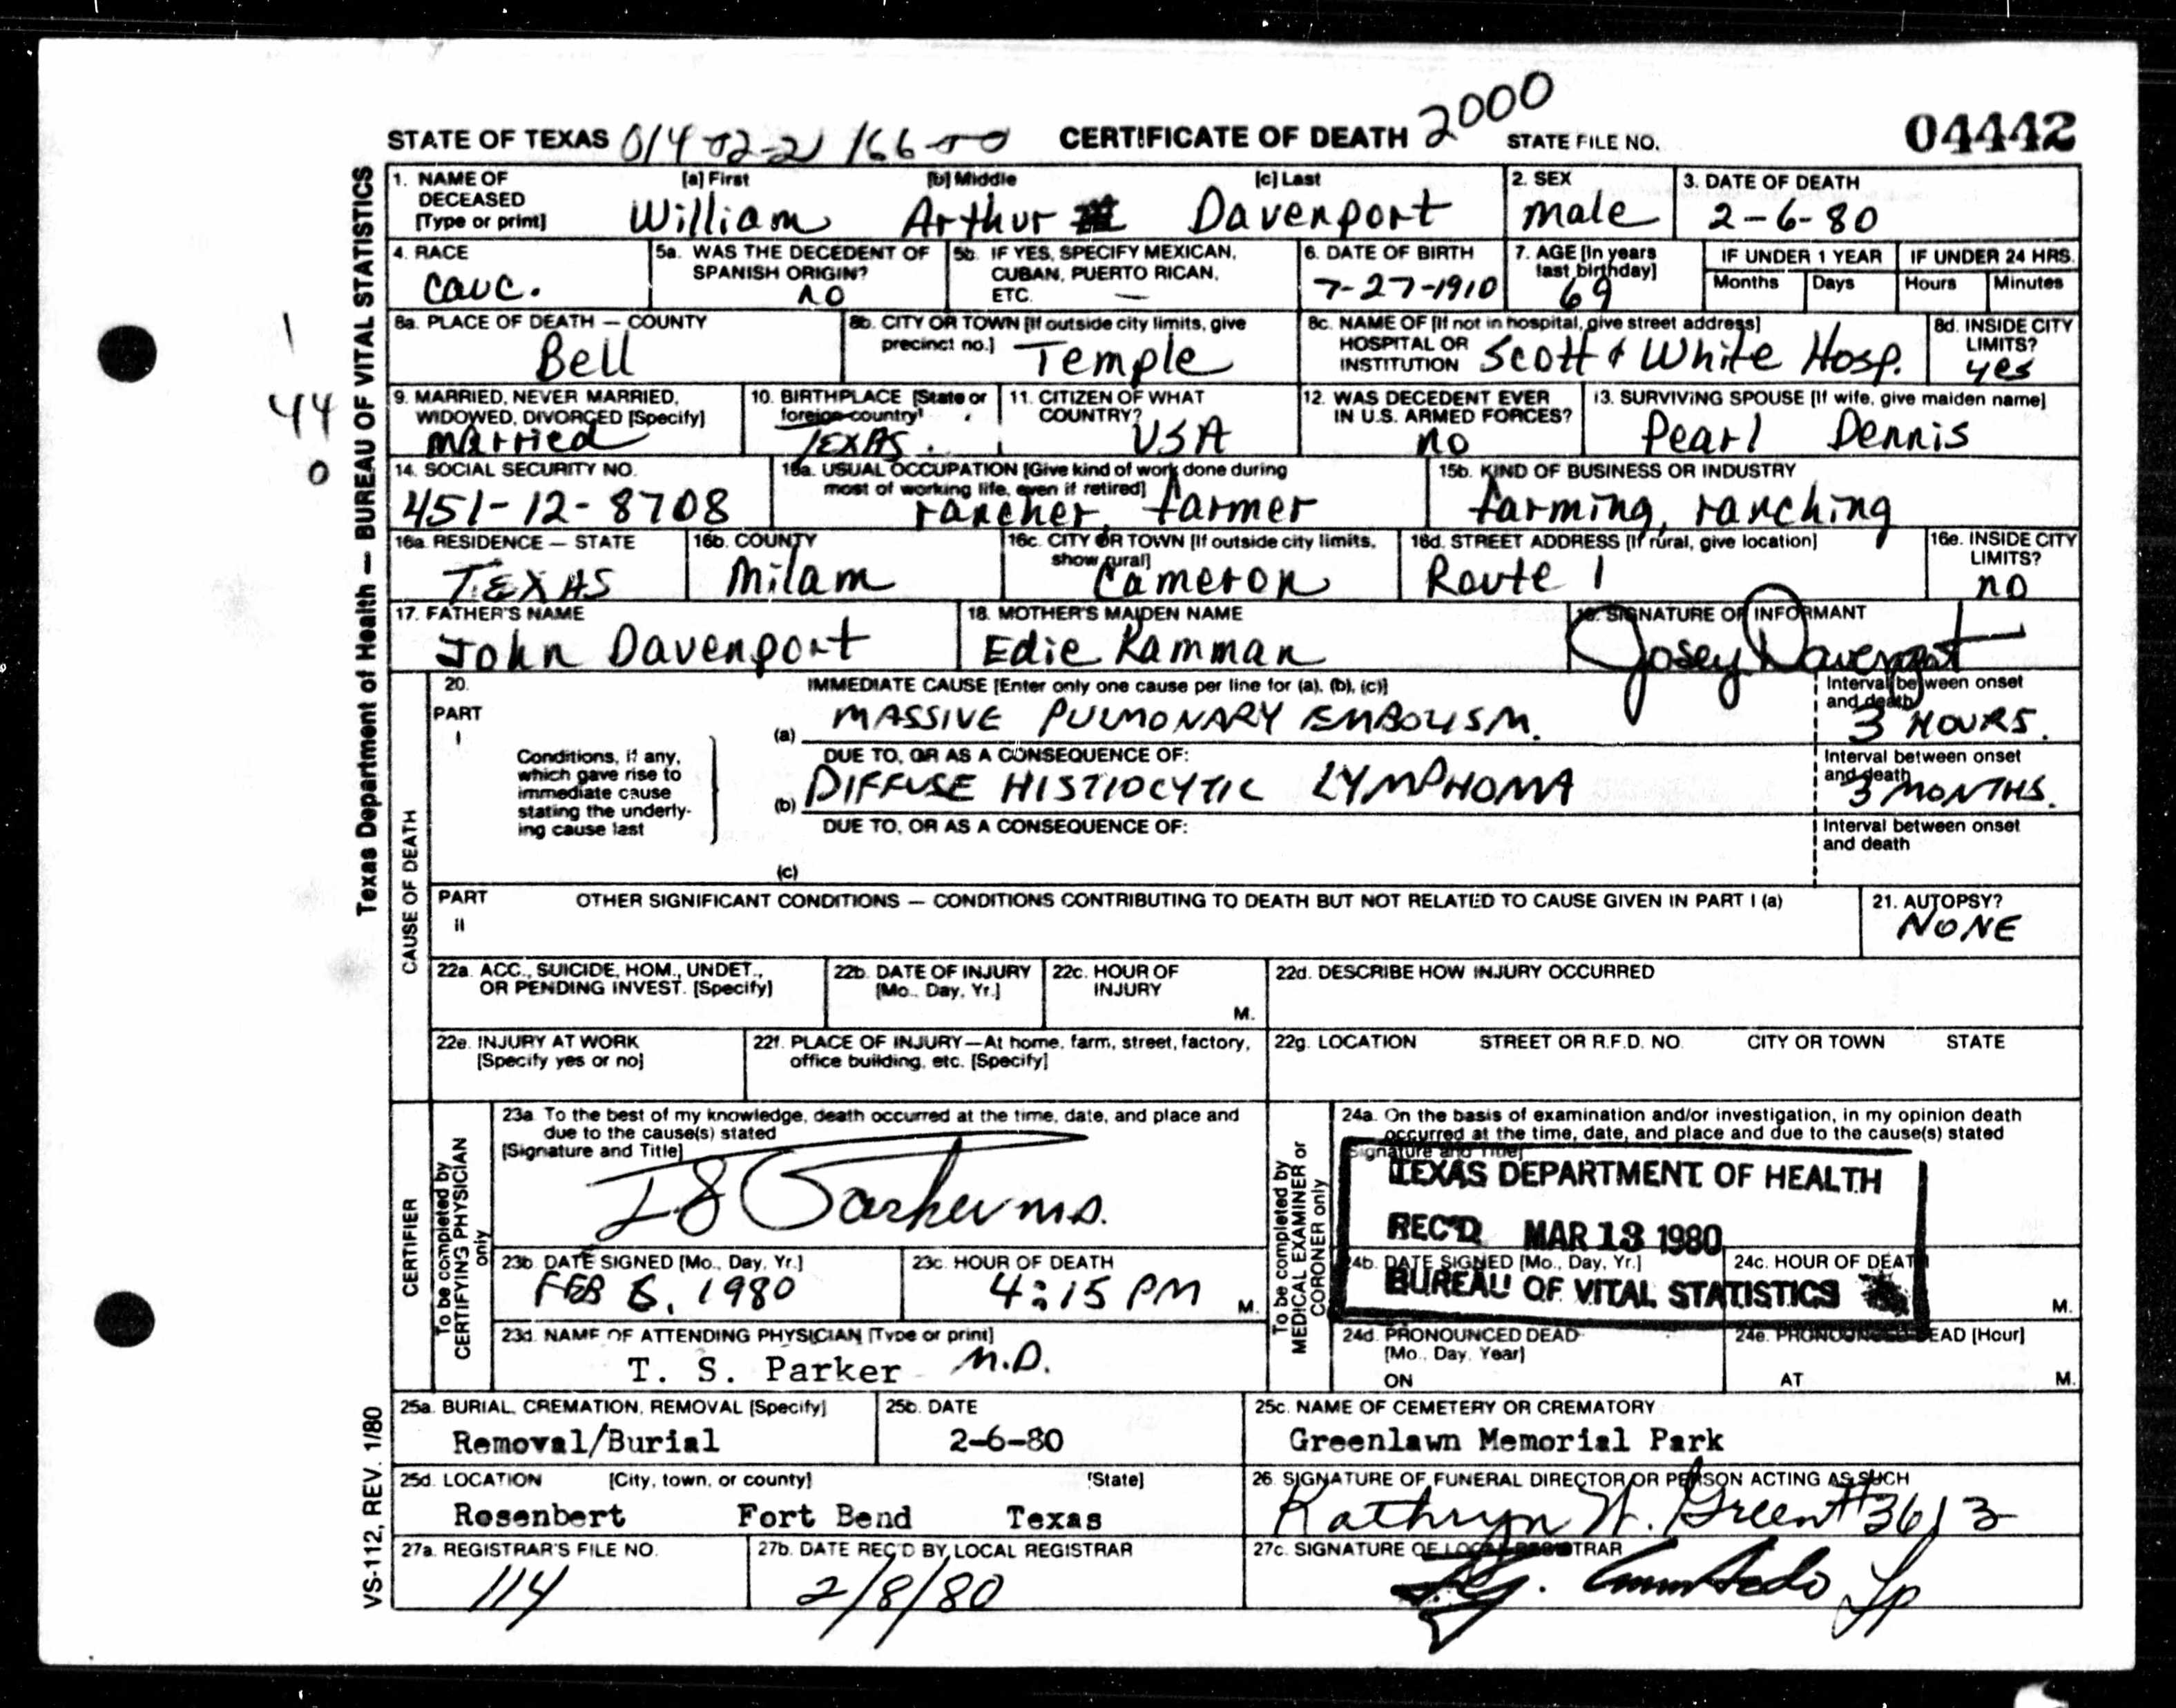 STATE OF TEXAS CERTIFICATE OF DEATH 2000 STATE FILE NO. 04442
Texas Department of Health — BUREAU OF VITAL STATISTICS
1. NAME OF DECEASED [Type or print] [a] First [b] Middle [c] Last
William Arthur Davenport
2. SEX
male
3. DATE OF DEATH
2-6-80
4. RACE
Cauc.
5a. WAS THE DECEDENT OF SPANISH ORIGIN?
no
5b. IF YES, SPECIFY MEXICAN, CUBAN, PUERTO RICAN, ETC.
—
6. DATE OF BIRTH
7-27-1910
7. AGE [In years last birthday]
69
IF UNDER 1 YEAR
Months Days
IF UNDER 24 HRS.
Hours Minutes
8a. PLACE OF DEATH — COUNTY
Bell
8b. CITY OR TOWN [If outside city limits, give precinct no.]
Temple
8c. NAME OF [If not in hospital, give street address] HOSPITAL OR INSTITUTION
Scott & White Hosp.
8d. INSIDE CITY LIMITS?
yes
1
44
0
9. MARRIED, NEVER MARRIED, WIDOWED, DIVORCED [Specify]
married
10. BIRTHPLACE [State or foreign country]
TEXAS.
11. CITIZEN OF WHAT COUNTRY?
USA
12. WAS DECEDENT EVER IN U.S. ARMED FORCES?
no
13. SURVIVING SPOUSE [If wife, give maiden name]
Pearl Dennis
14. SOCIAL SECURITY NO.
451-12-8708
15a. USUAL OCCUPATION [Give kind of work done during most of working life, even if retired]
rancher, farmer
15b. KIND OF BUSINESS OR INDUSTRY
farming, ranching
16a. RESIDENCE — STATE
TEXAS
16b. COUNTY
Milam
16c. CITY OR TOWN [If outside city limits, show rural]
Cameron
16d. STREET ADDRESS [If rural, give location]
Route 1
16e. INSIDE CITY LIMITS?
no
17. FATHER'S NAME
John Davenport
18. MOTHER'S MAIDEN NAME
Edie Kamman
19. SIGNATURE OF INFORMANT
Josey Davenport
CAUSE OF DEATH
20.
PART I
IMMEDIATE CAUSE [Enter only one cause per line for (a), (b), (c)]
(a) MASSIVE PULMONARY EMBOLISM.
Interval between onset and death
3 HOURS.
Conditions, if any, which gave rise to immediate cause stating the underlying cause last
DUE TO, OR AS A CONSEQUENCE OF:
(b) DIFFUSE HISTIOCYTIC LYMPHOMA
Interval between onset and death
3 MONTHS.
DUE TO, OR AS A CONSEQUENCE OF:
(c)
Interval between onset and death
PART II
OTHER SIGNIFICANT CONDITIONS — CONDITIONS CONTRIBUTING TO DEATH BUT NOT RELATED TO CAUSE GIVEN IN PART I (a)
21. AUTOPSY?
NONE
22a. ACC., SUICIDE, HOM., UNDET., OR PENDING INVEST. [Specify]
22b. DATE OF INJURY [Mo., Day, Yr.]
22c. HOUR OF INJURY
M.
22d. DESCRIBE HOW INJURY OCCURRED
22e. INJURY AT WORK [Specify yes or no]
22f. PLACE OF INJURY—At home, farm, street, factory, office building, etc. [Specify]
22g. LOCATION STREET OR R.F.D. NO. CITY OR TOWN STATE
CERTIFIER
To be completed by CERTIFYING PHYSICIAN only
23a. To the best of my knowledge, death occurred at the time, date, and place and due to the cause(s) stated
[Signature and Title]
TS Parker M.D.
23b. DATE SIGNED [Mo., Day, Yr.]
FEB 6, 1980
23c. HOUR OF DEATH
4:15 PM M.
23d. NAME OF ATTENDING PHYSICIAN [Type or print]
T. S. Parker M.D.
To be completed by MEDICAL EXAMINER or CORONER only
24a. On the basis of examination and/or investigation, in my opinion death occurred at the time, date, and place and due to the cause(s) stated
[Signature and Title]
TEXAS DEPARTMENT OF HEALTH
REC'D MAR 13 1980
BUREAU OF VITAL STATISTICS
24b. DATE SIGNED [Mo., Day, Yr.]
24c. HOUR OF DEATH
M.
24d. PRONOUNCED DEAD [Mo., Day, Year]
ON
24e. PRONOUNCED DEAD [Hour]
AT M.
25a. BURIAL, CREMATION, REMOVAL [Specify]
Removal/Burial
25b. DATE
2-6-80
25c. NAME OF CEMETERY OR CREMATORY
Greenlawn Memorial Park
25d. LOCATION [City, town, or county] [State]
Rosenbert Fort Bend Texas
26. SIGNATURE OF FUNERAL DIRECTOR OR PERSON ACTING AS SUCH
Kathryn W. Green #3613
27a. REGISTRAR'S FILE NO.
114
27b. DATE REC'D BY LOCAL REGISTRAR
2/8/80
27c. SIGNATURE OF LOCAL REGISTRAR
VS-112, REV. 1/80